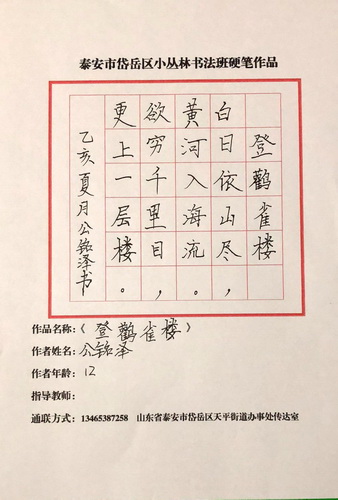 泰安市岱岳区小丛林书法班硬笔作品
登鹳雀楼
白日依山尽，
黄河入海流。
欲穷千里目，
更上一层楼。
乙亥夏月公铭泽书
作品名称：《登鹳雀楼》
作者姓名：公铭泽
作者年龄：12
指导教师：
通联方式：13465387258 山东省泰安市岱岳区天平街道办事处传达室